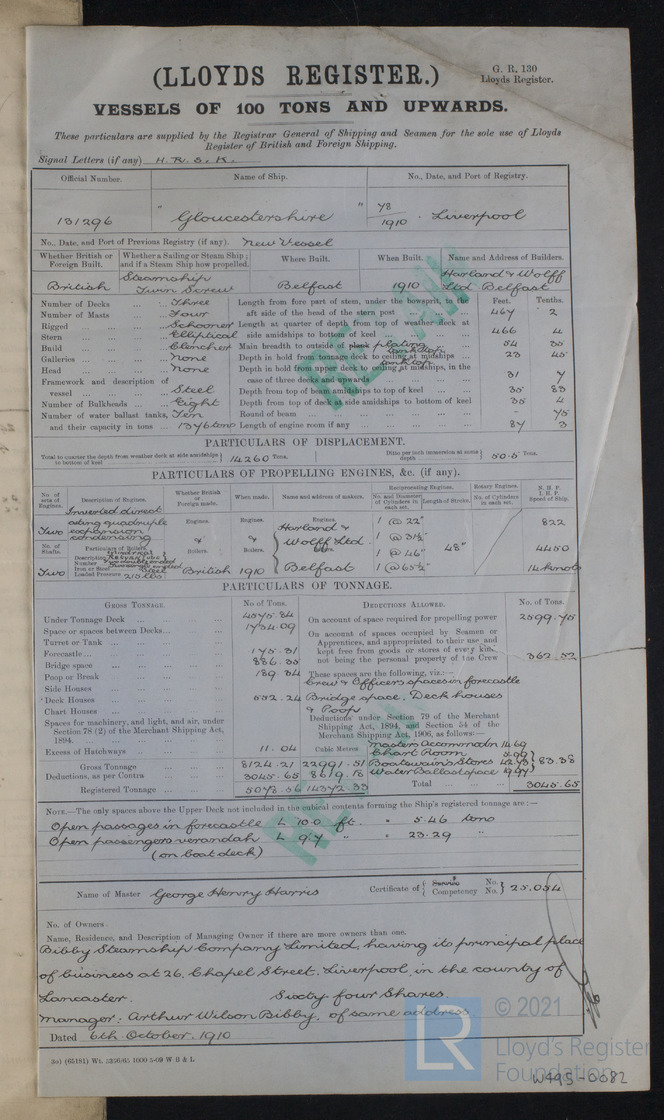 (LLOYDS REGISTER.)
G. R. 130
Lloyds Register.
VESSELS OF 100 TONS AND UPWARDS.
These particulars are supplied by the Registrar General of Shipping and Seamen for the sole use of Lloyds
Register of British and Foreign Shipping.
Signal Letters (if any) H. R. S. K.
Official Number. Name of Ship. No., Date, and Port of Registry.
131296 " Gloucestershire " 78/1910 . Liverpool
No., Date, and Port of Previous Registry (if any). New Vessel
Whether British or Foreign Built. Whether a Sailing or Steam Ship; and if a Steam Ship how propelled. Where Built. When Built. Name and Address of Builders.
British Steamship Twin Screw Belfast 1910 Harland & Wolff Ltd Belfast
Feet. Tenths.
Number of Decks ... Three Length from fore part of stem, under the bowsprit, to the
Number of Masts ... Four aft side of the head of the stern post ... 467 2
Rigged ... Schooner Length at quarter of depth from top of weather deck at
Stern ... Elliptical side amidships to bottom of keel ... 466 4
Build ... Clencher Main breadth to outside of plank plating ... 54 35
Galleries ... None Depth in hold from tonnage deck to ceiling tank top at midships ... 23 45
Head ... None Depth in hold from upper deck to ceiling tank top at midships, in the
Framework and description of case of three decks and upwards ... 31 7
vessel ... Steel Depth from top of beam amidships to top of keel ... 35 83
Number of Bulkheads ... Eight Depth from top of deck at side amidships to bottom of keel 35 4
Number of water ballast tanks, Ten Round of beam ... - 75
and their capacity in tons ... 1376 tons Length of engine room if any ... 87 3
PARTICULARS OF DISPLACEMENT.
Total to quarter the depth from weather deck at side amidships to bottom of keel } 14260 Tons. Ditto per inch immersion at same depth } 50.5 Tons.
PARTICULARS OF PROPELLING ENGINES, &c. (if any).
No. of sets of Engines. Description of Engines. Whether British or Foreign made. When made. Name and address of makers. Reciprocating Engines. Rotary Engines. N. H. P. I. H. P. Speed of Ship.
No. and Diameter of Cylinders in each set. Length of Stroke. No. of Cylinders in each set.
Two Inverted direct acting quadruple expansion condensing Engines. Engines. Engines. Harland & Wolff Ltd. Belfast 1 @ 22" 822
1 @ 31½"
No. of Shafts. Particulars of Boilers. Boilers. Boilers. 1 @ 46" 48" 4450
Two Description Number Iron or Steel Steel Loaded Pressure 215 lbs British 1910 1 @ 65½" 14 knots
PARTICULARS OF TONNAGE.
GROSS TONNAGE. No of Tons. DEDUCTIONS ALLOWED. No. of Tons.
Under Tonnage Deck ... 4575.84 On account of space required for propelling power 2599.75
Space or spaces between Decks ... 1734.09 On account of spaces occupied by Seamen or
Turret or Trunk ... Apprentices, and appropriated to their use, and
Forecastle ... 175.31 kept free from goods or stores of every kind,
Bridge space ... 886.35 not being the personal property of the Crew 362.52
Poop or Break ... 189.34 These spaces are the following, viz.:—
Side Houses ... Crew & Officers spaces in forecastle
Deck Houses ... 552.24 Bridge space, Deck houses
Chart Houses ... & Poop
Spaces for machinery, and light, and air, under Section 78 (2) of the Merchant Shipping Act, 1894. Deductions under Section 79 of the Merchant Shipping Act, 1894, and Section 54 of the Merchant Shipping Act, 1906, as follows:—
Masters Accommodn 14.69
Excess of Hatchways ... 11.04 Cubic Metres Chart Room
Gross Tonnage 8124.21 22991.51 Boatswain's Stores 42.73 } 83.38
Deductions, as per Contra 3045.65 8619.18 Water Ballast space 19.97
Registered Tonnage ... 5078.56 14372.33 Total ... 3045.65
NOTE.—The only spaces above the Upper Deck not included in the cubical contents forming the Ship's registered tonnage are:—
Open passages in forecastle L 10.0 ft. " 5.46 tons
Open passengers verandah L 9.7 " " 23.29 "
(on boat deck)
Name of Master George Henry Harris Certificate of { Service Competency No. No. } 25.054
No. of Owners
Name, Residence, and Description of Managing Owner if there are more owners than one.
Bibby Steamship Company Limited, having its principal place
of business at 26, Chapel Street, Liverpool, in the county of
Lancaster. Sixty four Shares.
Manager: Arthur Wilson Bibby, of same address
Dated 6th October. 1910
W495-0082
LR
© 2021
Lloyd's Register
Foundation